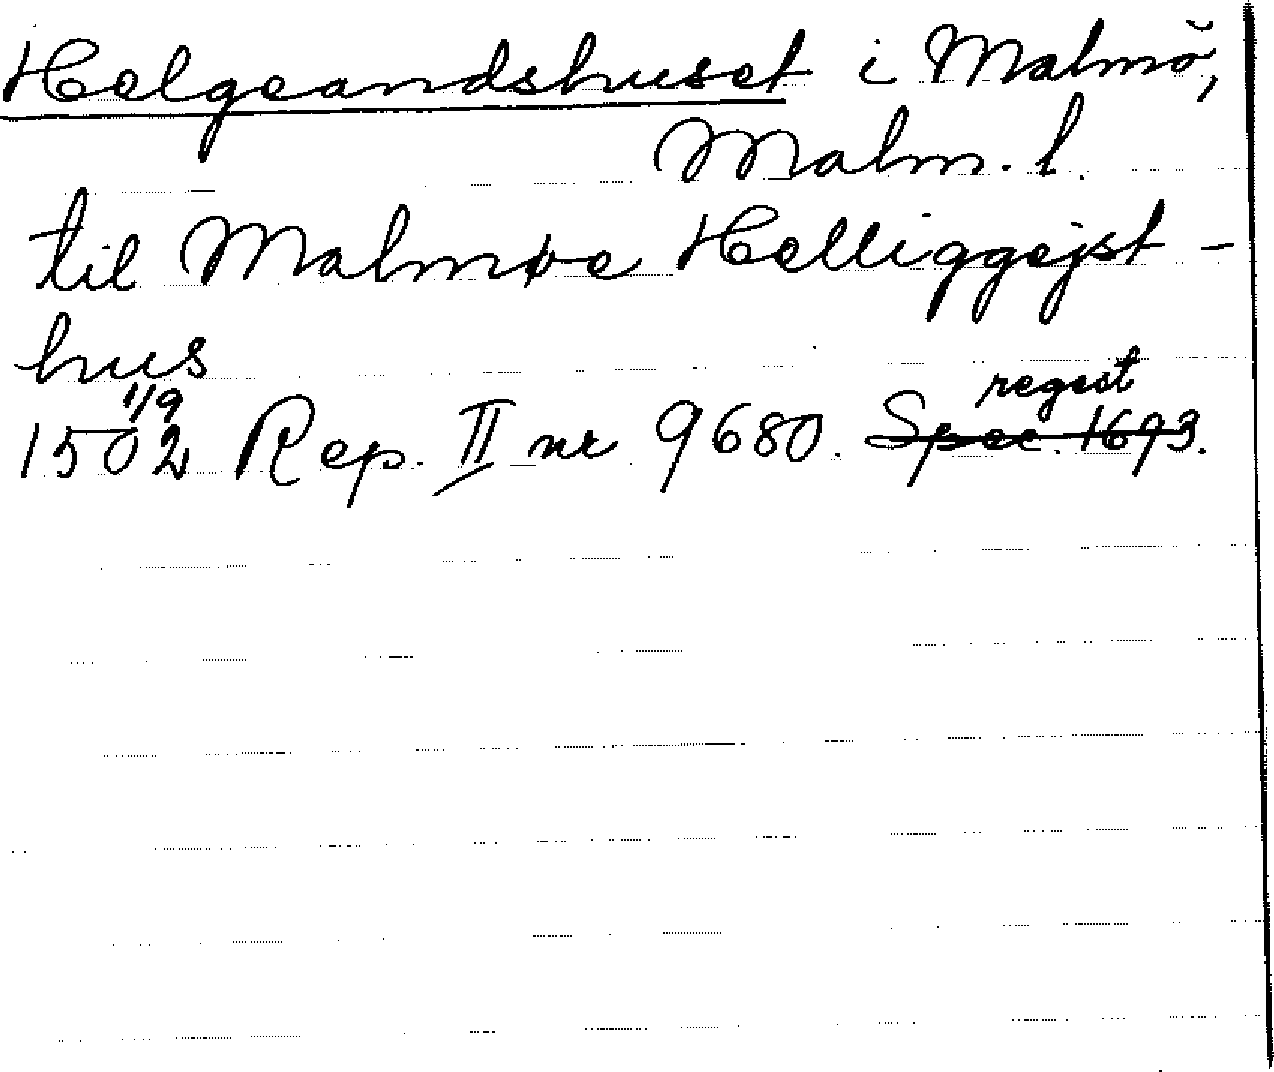 Helgeandshuset i Malmö,
Malm. l.
til Malmøe Helliggejst-
hus
1/9 regest
1502 Rep. II nr 9680. Spec. 1673.